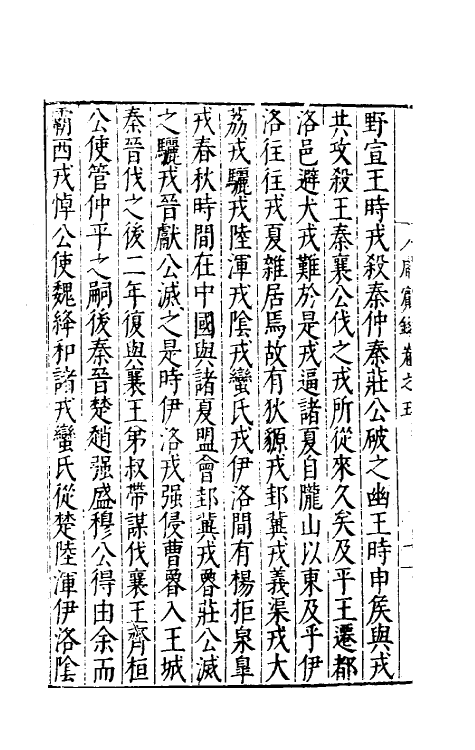 八厨賔錄卷之五
野宣王時戎殺秦仲秦莊公破之幽王時申侯與戎
共攻殺王秦襄公伐之戎所從來久矣及平王遷都
洛邑避犬戎難於是戎逼諸夏自隴山以東及乎伊
洛往往戎夏雜居焉故有狄䝠戎邽冀戎義渠戎大
荔戎驪戎陸渾戎陰戎蠻氏戎伊洛間有楊拒泉臯
戎春秋時間在中國與諸夏盟會邽冀戎魯莊公滅
之驪戎晉獻公滅之是時伊洛戎强侵曹魯入王城
秦晉伐之後二年復與襄王弟叔帶謀伐襄王齊桓
公使管仲平之嗣後秦晉楚趙强盛穆公得由余而
霸西戎悼公使魏絳和諸戎蠻氏從楚陸渾伊洛陰